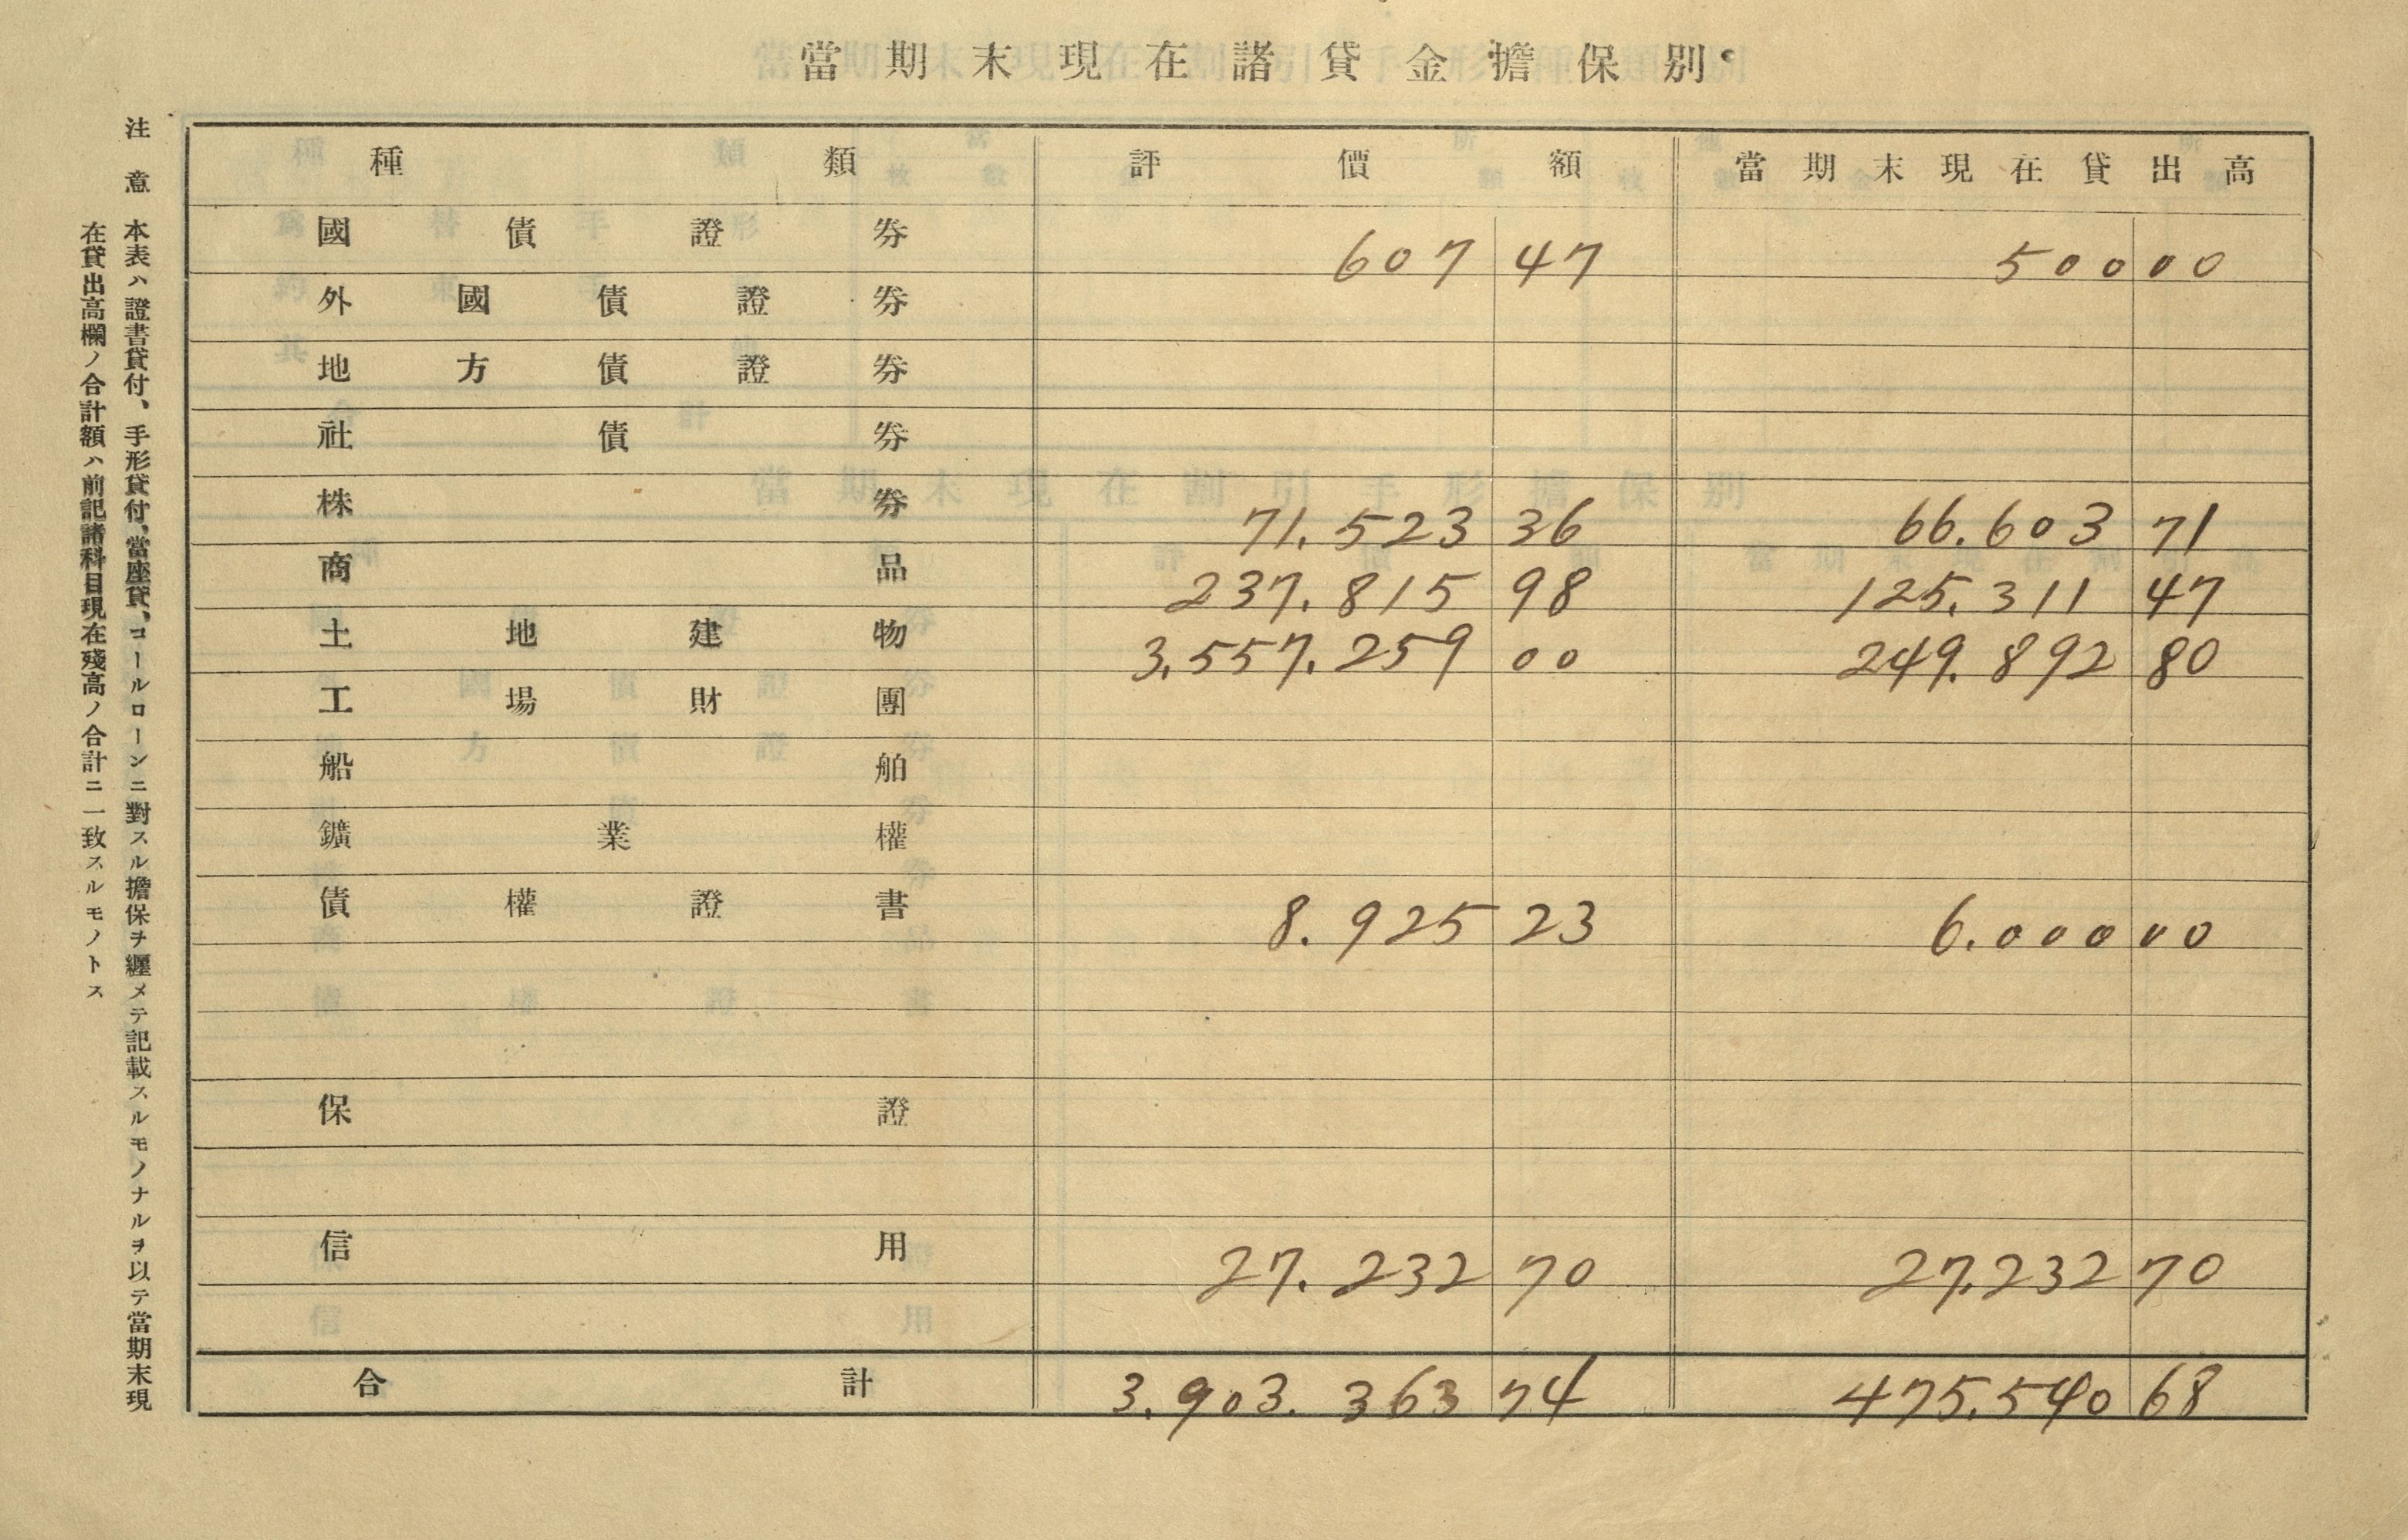 當期末現在諸貸金擔保別
種類 評價額 當期末現在貸出高
國債證券 607 47 500 00
外國債證券
地方債證券
社債券
株券 71.523 36 66.603 71
商品 237.815 98 125.311 47
土地建物 3.557.259 00 249.892 80
工場財團
船舶
鑛業權
債權證書 8.925 23 6.000 00
保證
信用 27.232 70 27.232 70
合計 3.903.363 74 475.540 68
注意 本表ハ證書貸付、手形貸付、當座貸、コールローンニ對スル擔保ヲ纒メテ記載スルモノナルヲ以テ當期末現
在貸出高欄ノ合計額ハ前記諸科目現在殘高ノ合計ニ一致スルモノトス